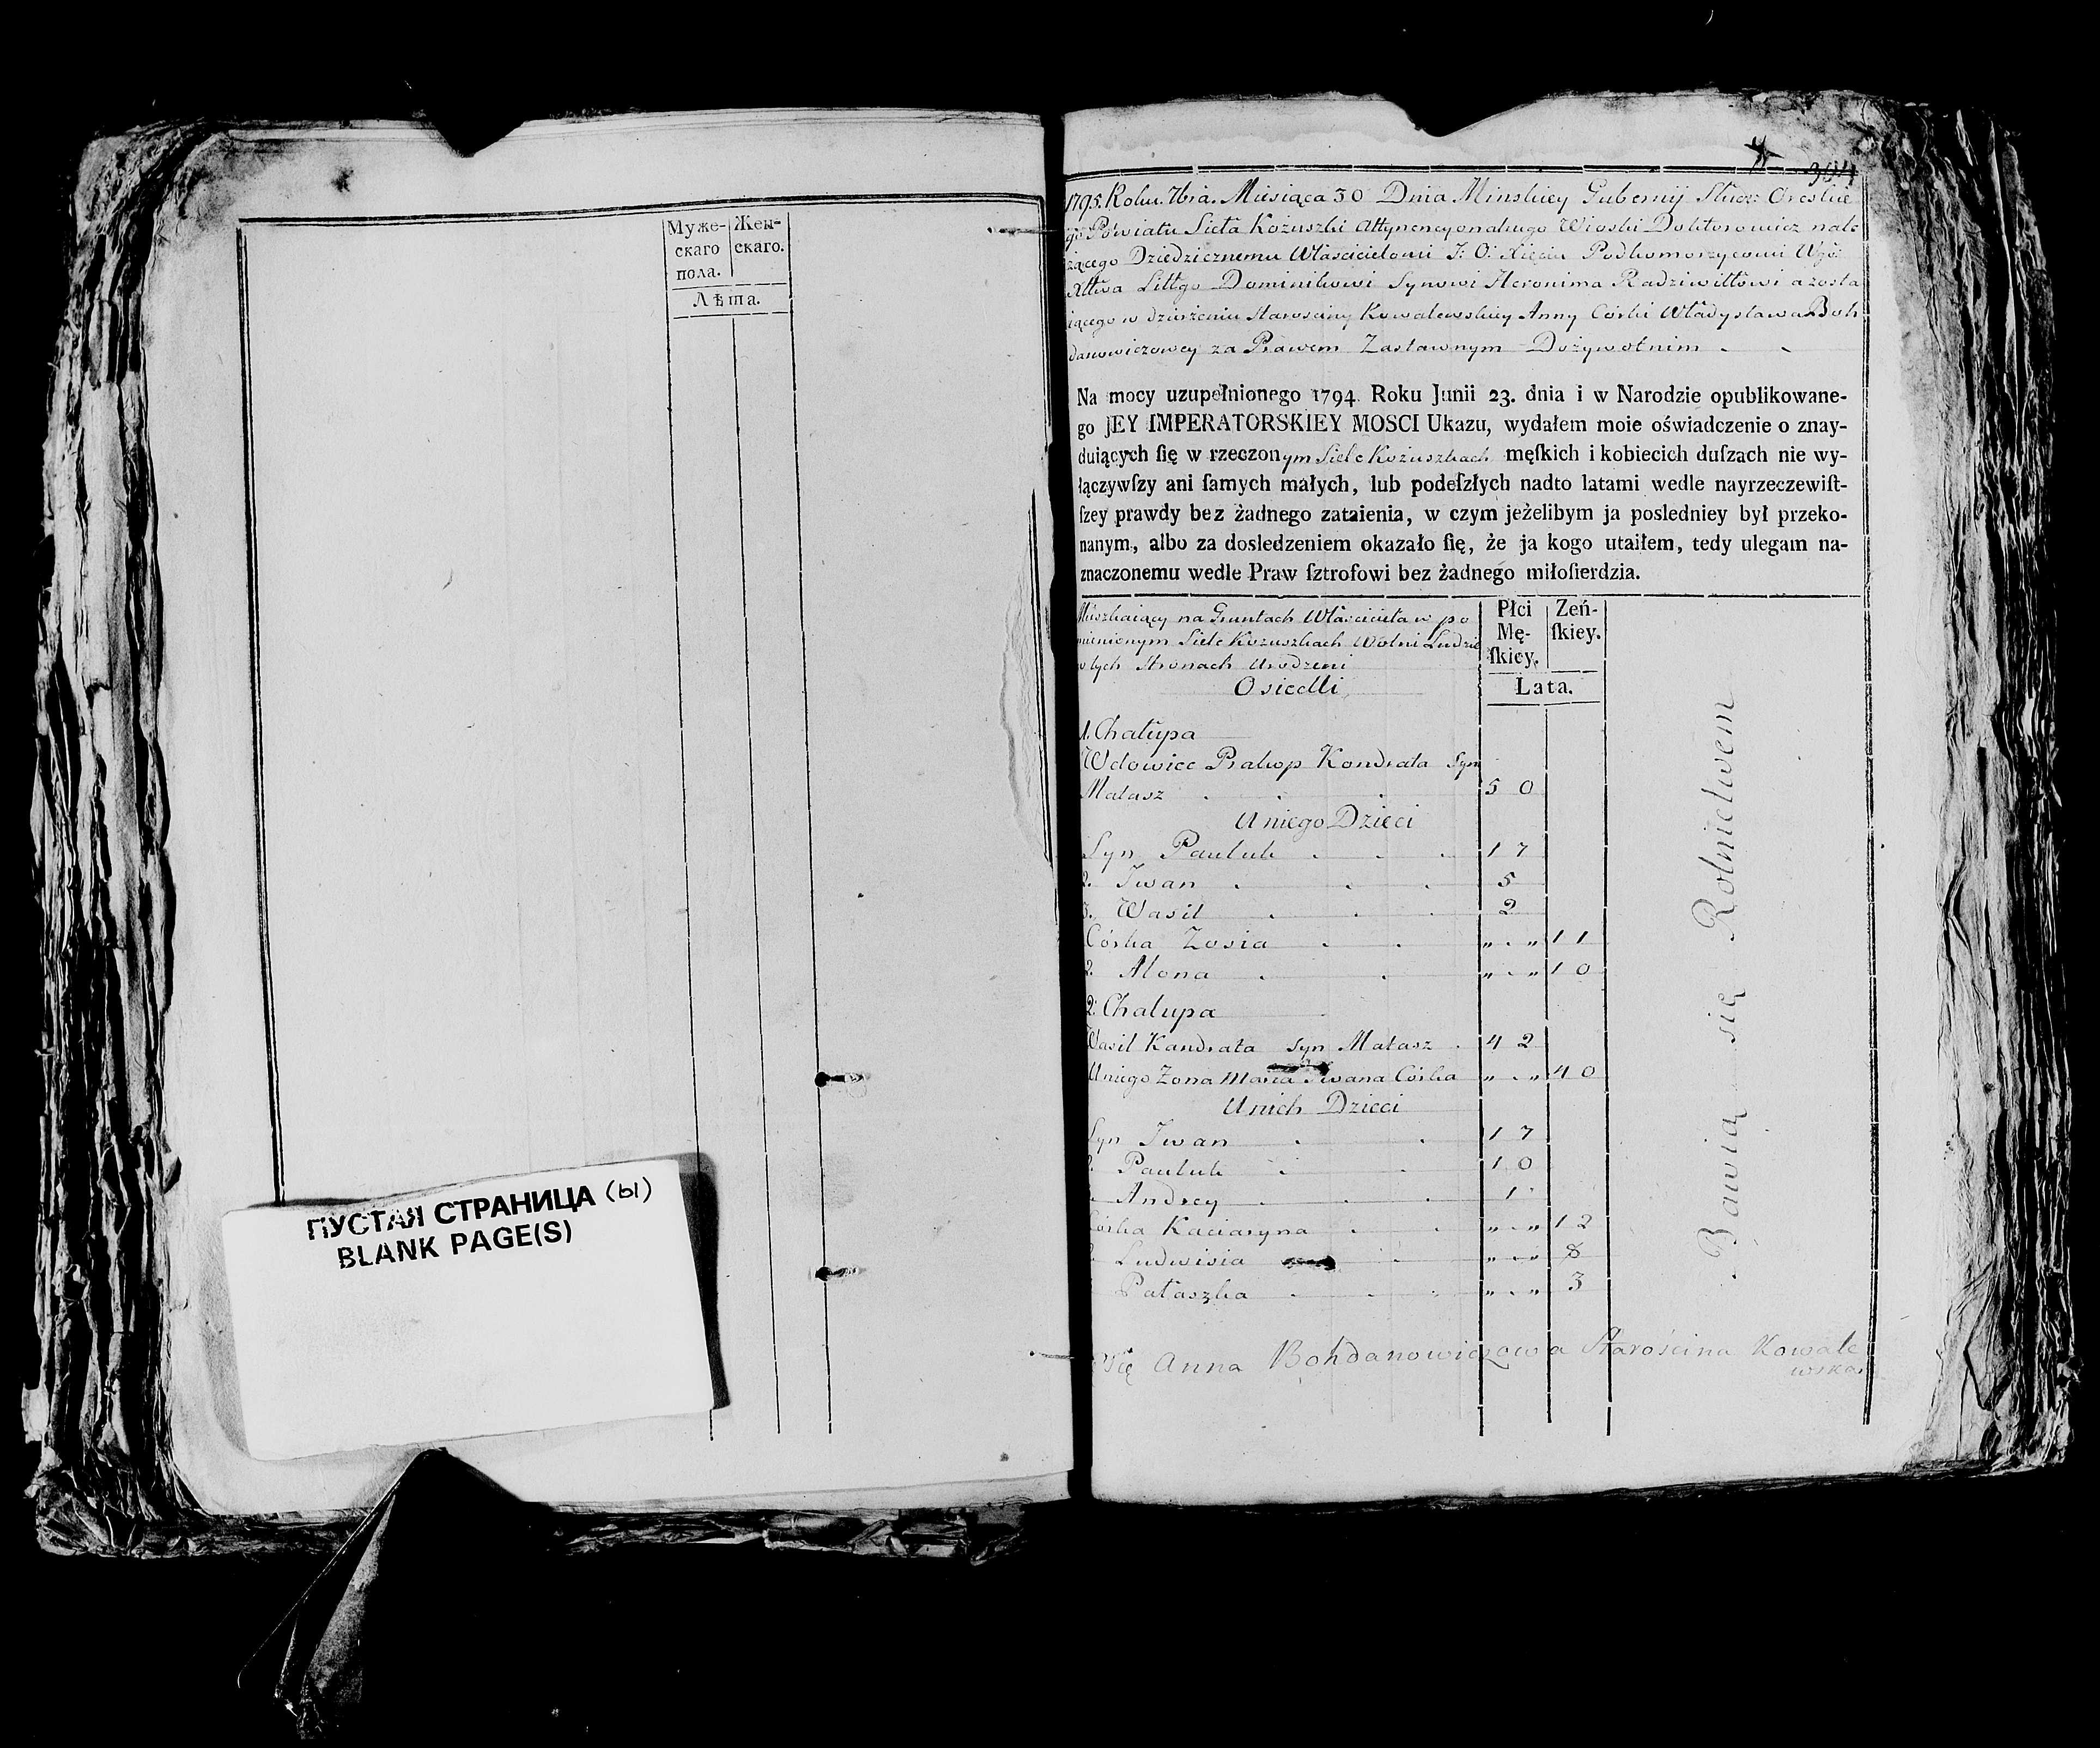 Муже-
скаго
пола.
Жен-
скаго.
Лѣта.
ПУСТАЯ СТРАНИЦА (ы)
BLANK PAGE(S)
304
1795. Roku. 7bra. Miesiąca 30 Dnia Minskiey Gubernij Słuck:
go Powiatu Sieła Kozuszki Attynencyonalnego Wioski Doktorowicz nale
żącego Dziedzicznemu Właścicielowi J: O: Xięciu Podkomorzycowi
Xttwa Littgo Dominikowi Synowi Heronima Radziwiłłowi a zosta
iącego w dzierżeniu Starosciny Kowalewskiey Anny Corki Władysława Boh
danowiczowey za Prawem Zastawnym Dożywotnim
Na mocy uzupełnionego 1794. Roku Junii 23. dnia i w Narodzie opublikowane-
go JEY IMPERATORSKIEY MOSCI Ukazu, wydałem moie oświadczenie o znay-
duiących ſię w rzeczonym Siele Kożuszkach męſkich i kobiecich duſzach nie wy-
łączywſzy ani ſamych małych, lub podeſzłych nadto latami wedle nayrzeczewiſt-
ſzey prawdy bez żadnego zataienia, w czym jeżelibym ja posledniey był przeko-
nanym, albo za dosledzeniem okazało ſię, że ja kogo utaiłem, tedy ulegam na-
znaczonemu wedle Praw ſztrofowi bez żadnego miłoſierdzia.
Mieszkaiący na Gruntach Właściciela w po
mienionym Siele Kozuszkach Wolni Ludzie
w tych Stronach Urodzeni
Osiedli
Płci
Mę-
ſkiey.
Zeń-
ſkiey.
Lata.
1. Chałupa
Wdowiec Prakop Kondrata Syn
Matasz 50
U niego Dzieci
Syn Pauluk 17
2. Iwan 5
3. Wasil 2
Córka Zosia „ . „ 11
2. Alona „ . „ 10
2. Chałupa
Wasil Kandrata syn Matasz 42
U niego Zona Maria Iwana Córka „ . „ 40
U nich Dzieci
Syn Iwan 17
Pauluk 10
Andrey 1
Córka Kaciaryna „ . „ 12
Ludwisia „ . „ 8
Pałaszka „ . „ 3
Bawią się Rolnictwem
Anna Bohdanowiczowa Starościna Kowale
wska